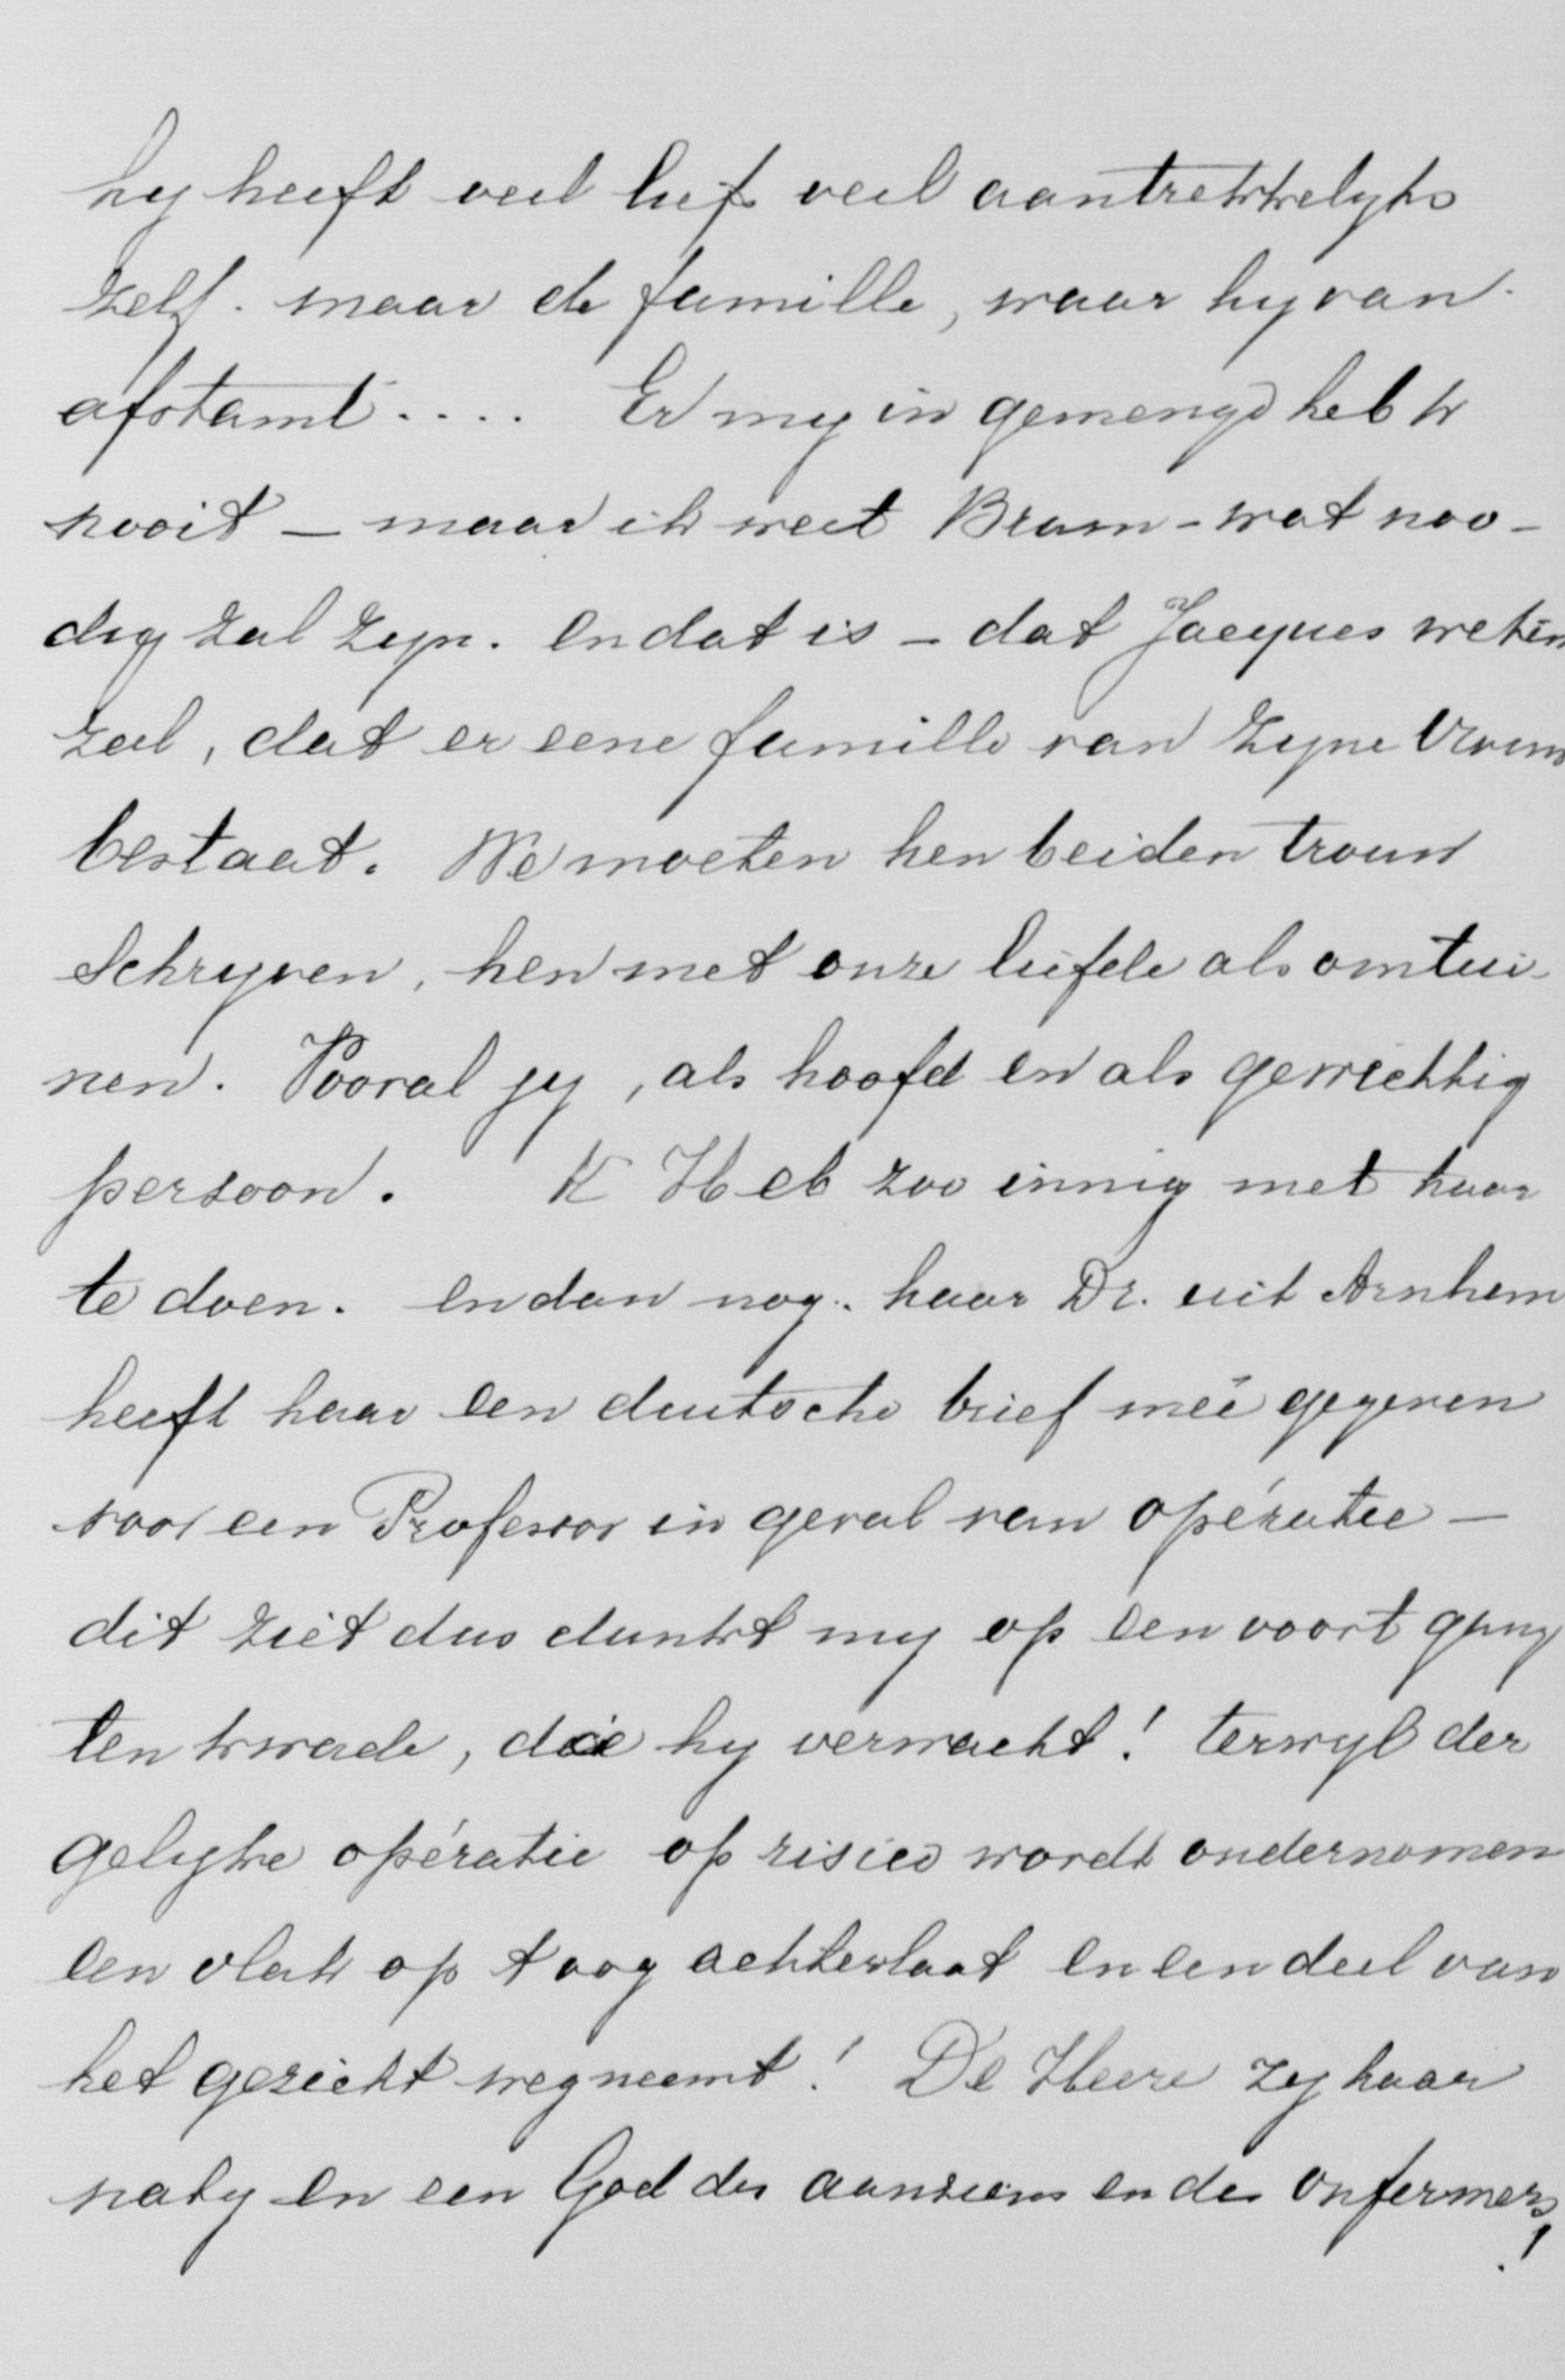 hy heeft veel lief veel aantrekkelyks
zelf. maar de famille, waar hy van
afstamt .... Er my in gemengd heb k
nooit – maar ik weet Bram – wat noo-
dig zal zyn. en dat is – dat Jacques weten
zal, dat er eene famille van zyne Vrouw
bestaat. We moeten hen beiden trouw
schryven, hen met onze liefde als omtui-
nen. Vooral jy, als hoofd en als gewichtig
persoon. K Heb zoo innig met haar
te doen. en dan nog. haar Dr. uit Arnhem
heeft haar een duitsche brief meê gegeven
voor een Professor in geval van opératie –
dit ziet dus dunkt my op een voort gang
ten kwade, die hy verwacht! terwyl der
gelyke opératie op risico wordt ondernomen
een vlak op t oog achterlaat en een deel van
het gezicht wegneemt! De Heere zy haar
naby en een God des aanziens en des ontfermens!